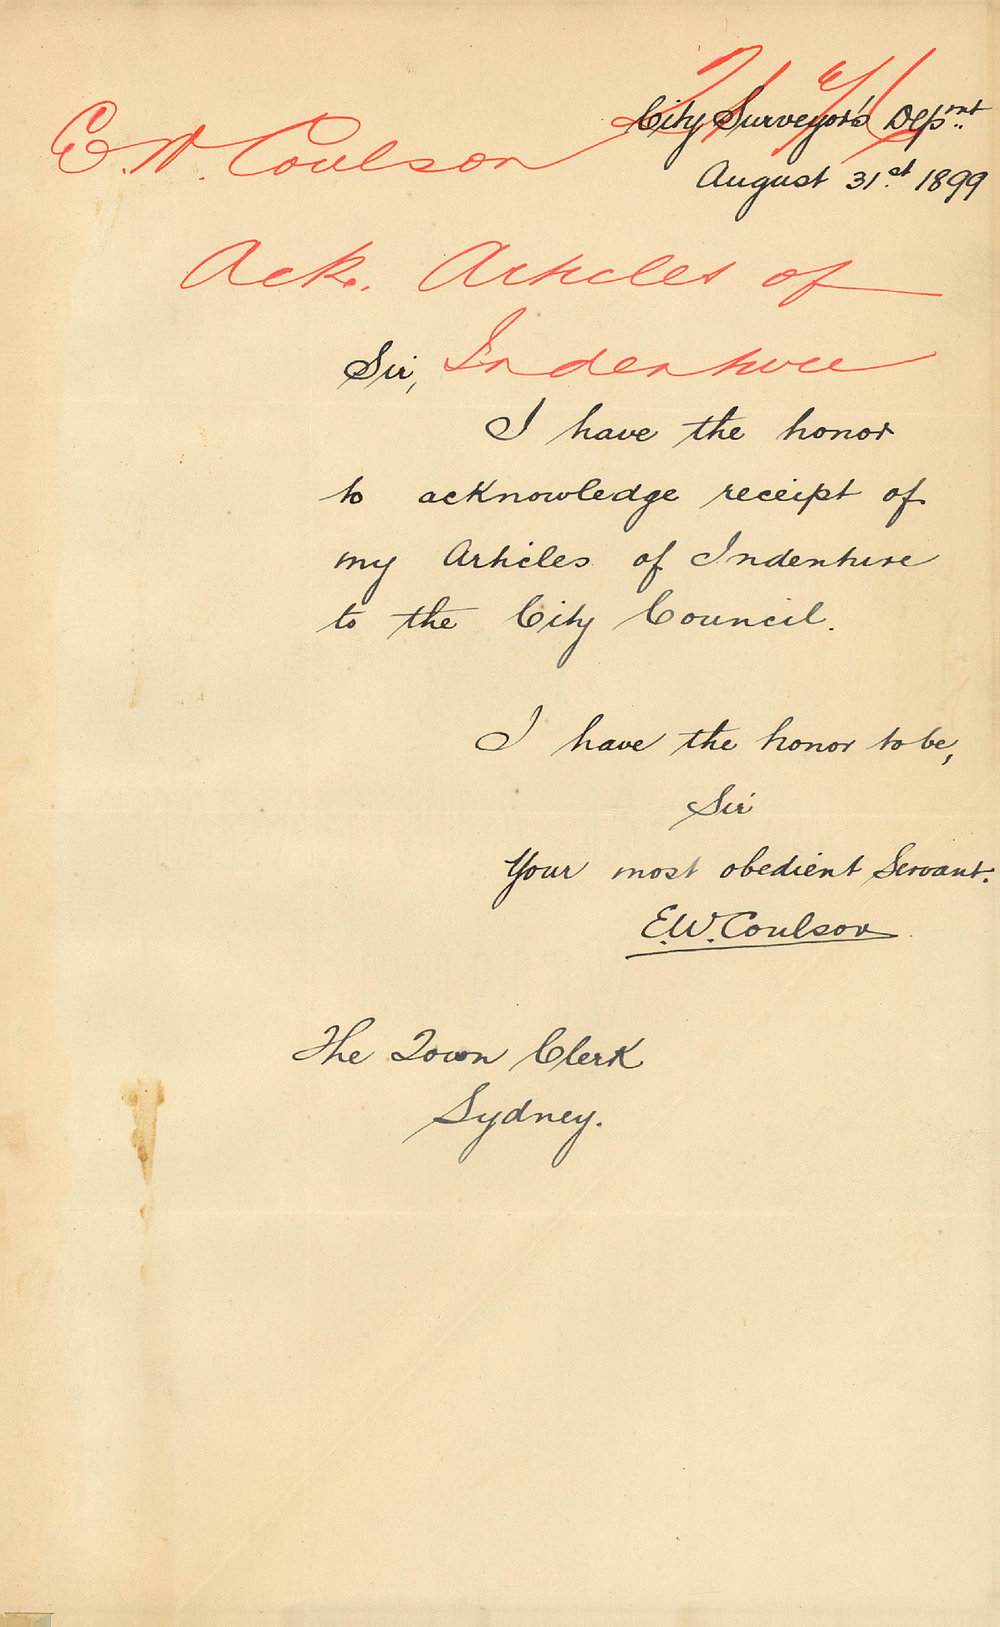 City Surveyor's Depmt.
August 31.st 1899
E.W. Coulson
Ack. Articles of
Indenture
Sir,
I have the honor
to acknowledge receipt of
my Articles of Indenture
to the City Council.
I have the honor to be,
Sir
Your most obedient Servant.
E.W. Coulson
The Town Clerk
Sydney.